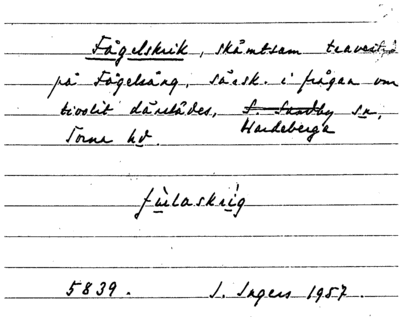 Fågelskrik, skämtsam travesti
på Fågelsång, särsk. i frågan om
tivolit därstädes, S. Sandby sn,
Hardeberga
Torna hd.
fùlaskrìg
5839. I. Ingers 1957.